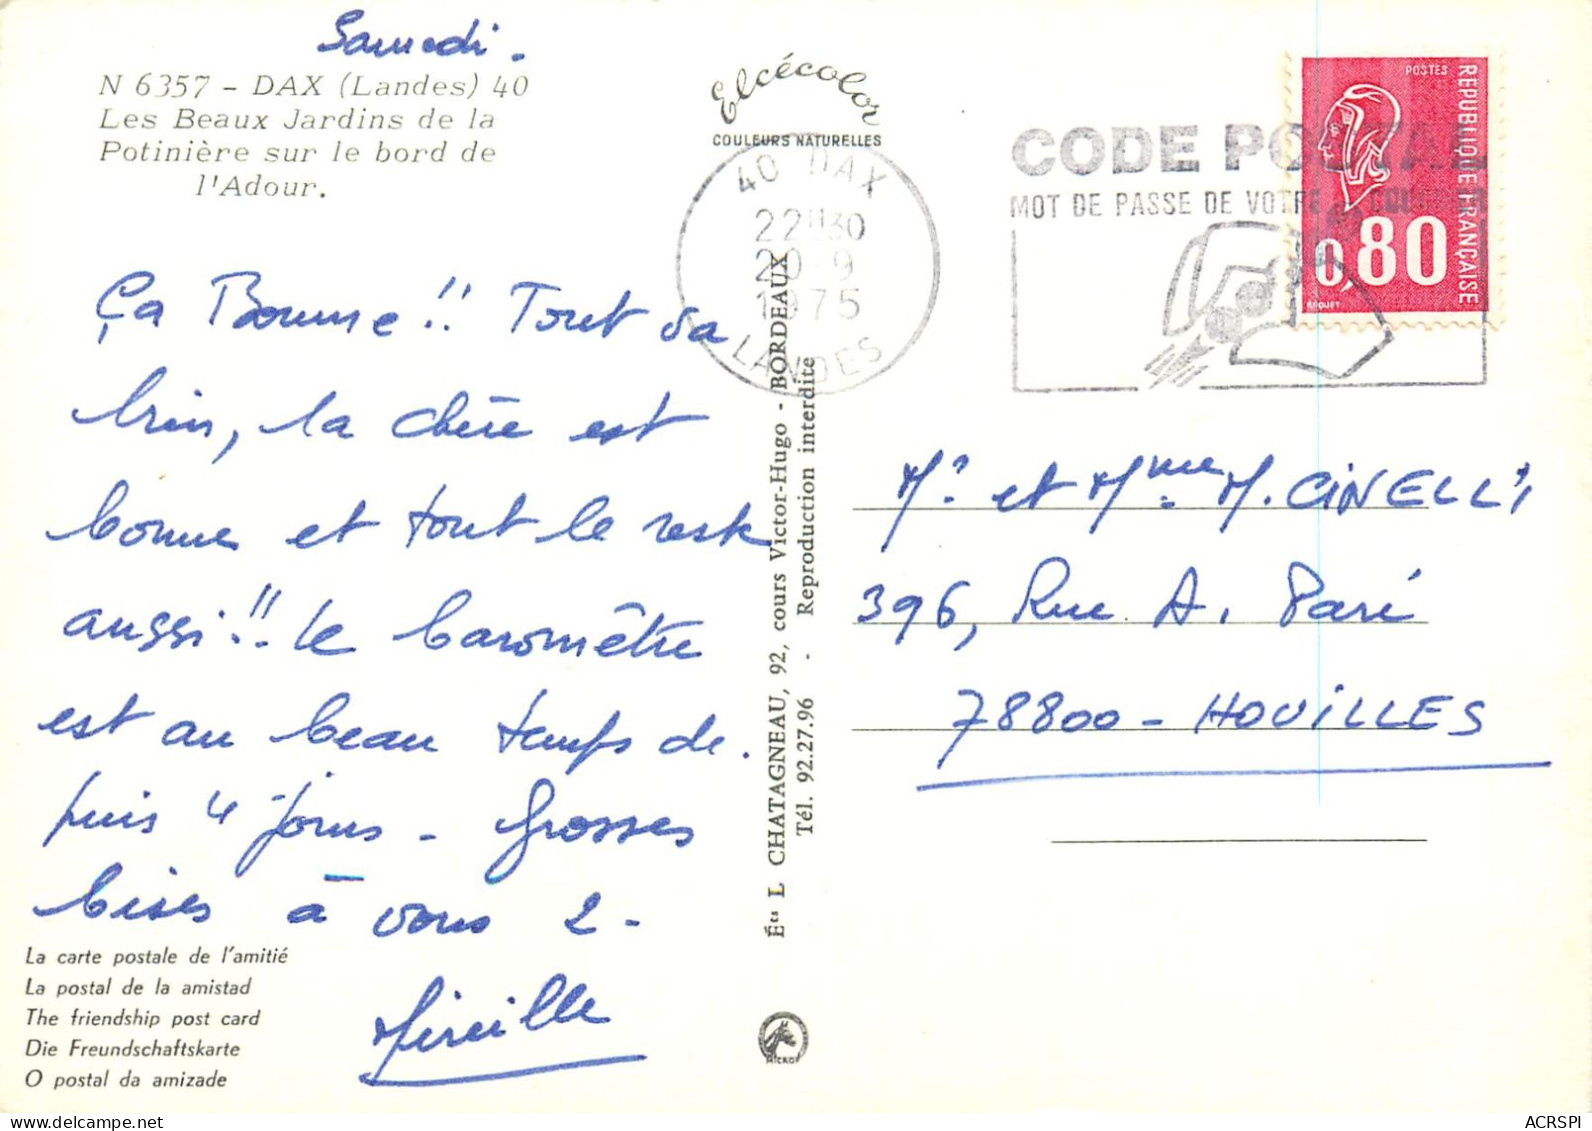 Samedi.
N 6357 - DAX (Landes) 40
Les Beaux Jardins de la
Potinière sur le bord de
l'Adour.
Elcécolor
COULEURS NATURELLES
40 DAX
22H30
20-9
1975
LANDES
CODE POSTAL
MOT DE PASSE DE VOTRE COURRIER
POSTES
REPUBLIQUE FRANÇAISE
0,80
BEQUET
Ça Bomme!! Tout va
bien, la chère est
bonne et tout le reste
aussi!! Le baromètre
est au beau temps de-
puis 4 jours - Grosses
bises à vous 2 -
Mireille
Mr et Mme M. CINELLI
396, Rue A. Paré
78800 - HOUILLES
Éts L CHATAGNEAU, 92, cours Victor-Hugo - BORDEAUX
Tél. 92.27.96 - Reproduction interdite
La carte postale de l'amitié
La postal de la amistad
The friendship post card
Die Freundschaftskarte
O postal da amizade
ACRSPI